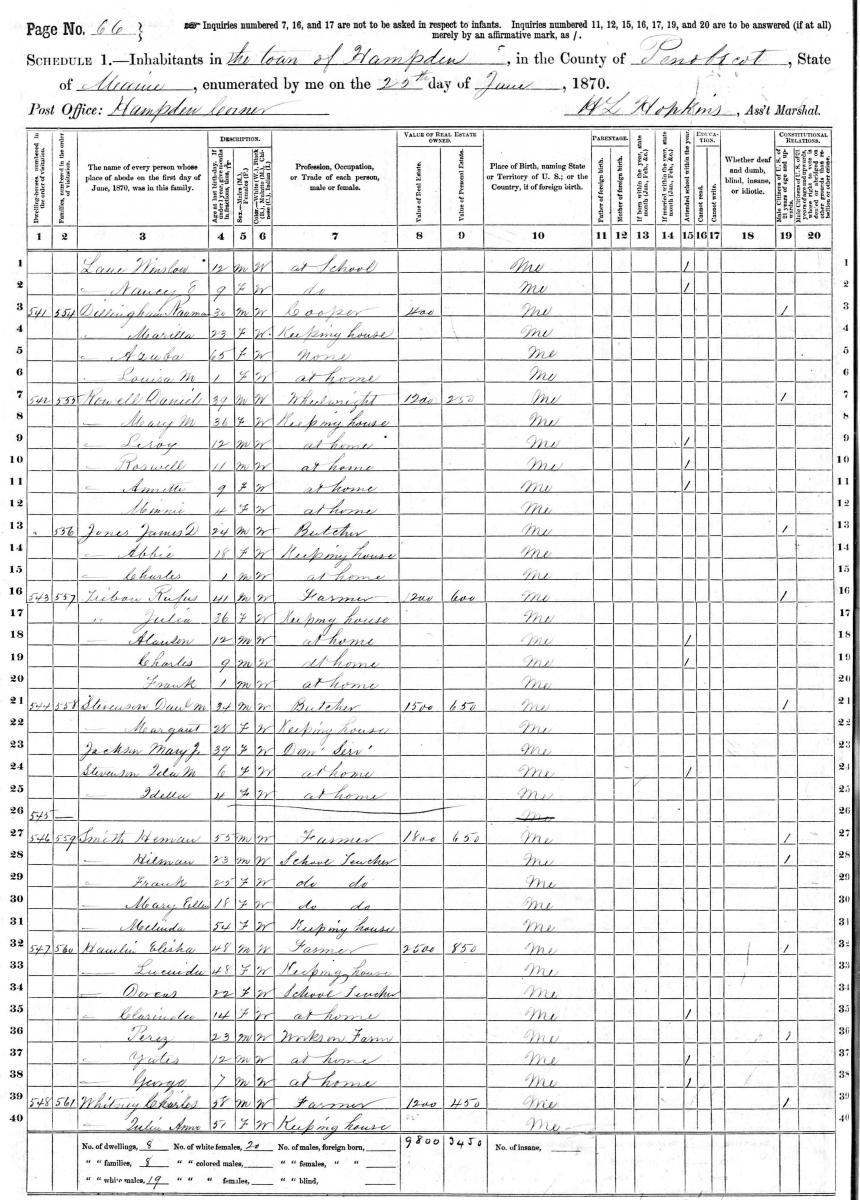 Page No. 66 }
☞ Inquiries numbered 7, 16, and 17 are not to be asked in respect to infants. Inquiries numbered 11, 12, 15, 16, 17, 19, and 20 are to be answered (if at all) merely by an affirmative mark, as /.
SCHEDULE 1.—Inhabitants in the town of Hampden, in the County of Penobscot, State
of Maine, enumerated by me on the 25th day of June, 1870.
Post Office: Hampden Corner H L Hopkins, Ass't Marshal.
DESCRIPTION. VALUE OF REAL ESTATE OWNED. PARENTAGE. EDUCATION. CONSTITUTIONAL RELATIONS.
Dwelling-houses, numbered in the order of visitation.
Families, numbered in the order of visitation.
The name of every person whose place of abode on the first day of June, 1870, was in this family.
Age at last birth-day. If under 1 year, give months in fractions, thus,
Sex.—Males (M.), Females (F.)
Color.—White (W.), Black (B.), Mulatto (M.), Chinese (C.), Indian (I.)
Profession, Occupation, or Trade of each person, male or female.
Value of Real Estate.
Value of Personal Estate.
Place of Birth, naming State or Territory of U. S.; or the Country, if of foreign birth.
Father of foreign birth.
Mother of foreign birth.
If born within the year, state month (Jan, Feb, &c.)
If married within the year, state month (Jan, Feb, &c.)
Attended school within the year.
Cannot read.
Cannot write.
Whether deaf and dumb, blind, insane, or idiotic.
Male Citizens of U. S. of 21 years of age and upwards.
Male Citizens of U. S. of 21 years of age and upwards, whose right to vote is denied or abridged on other grounds than rebellion or other crime.
1 2 3 4 5 6 7 8 9 10 11 12 13 14 15 16 17 18 19 20
1 Lane Winslow 12 M W at School Me / 1
2 " Nancy E 9 F W do Me / 2
3 541 554 Dillingham 30 M W Cooper 400 Me / 3
4 " Marilla 23 F W Keeping house Me 4
5 " Azuba 65 F W None Me 5
6 " Louisa M 1 F W at home Me 6
7 542 555 Rowell Daniel 39 M W Wheelwright 1200 250 Me / 7
8 " Mary M 36 F W Keeping house Me 8
9 " Leroy 12 M W at home Me / 9
10 " Roswell 11 M W at home Me / 10
11 " Annette 9 F W at home Me / 11
12 Minnie 4 F W at home Me 12
13 " 556 Jones James D 24 M W Butcher Me / 13
14 — Abbie 18 F W Keeping house Me 14
15 — Charles 1 M W at home Me 15
16 543 557 Tribou Rufus 41 M W Farmer 1200 600 Me / 16
17 " Julia 36 F W Keeping house Me 17
18 — Alanson 12 M W at home Me / 18
19 Charles 9 M W at home Me / 19
20 Frank 1 M W at home Me 20
21 544 558 Stevenson Danl M 34 M W Butcher 1500 650 Me / 21
22 Margaret 28 F W Keeping house Me 22
23 Jackson Mary J 39 F W Dom' Serv' Me 23
24 Stevenson Ida M 6 F W at home Me / 24
25 " Idella 4 F W at home Me 25
26 545 — Me 26
27 546 559 Smith Heman 55 M W Farmer 1800 650 Me / 27
28 — Hilman 23 M W School Teacher Me / 28
29 — Frank 25 F W do do Me 29
30 — Mary Ellen 18 F W do do Me 30
31 — Melinda 54 F W Keeping house Me 31
32 547 560 Hamlin Elisha 48 M W Farmer 2500 850 Me / 32
33 — Lucinda 48 F W Keeping house Me 33
34 — Dorcas 22 F W School Teacher Me 34
35 — Clarinda 14 F W at home Me / 35
36 Perez 23 M W Works on Farm Me / 36
37 " Yates 12 M W at home Me / 37
38 " George 7 M W at home Me / 38
39 548 561 Whitney Charles 58 M W Farmer 1200 450 Me / 39
40 — Julia Ann 51 F W Keeping house Me 40
No. of dwellings, 8 No. of white females, 20 No. of males, foreign born, 9800 3450 No. of insane,
" " families, 8 " " colored males, " " females, " "
" " white males, 19 " " " females, " " blind,